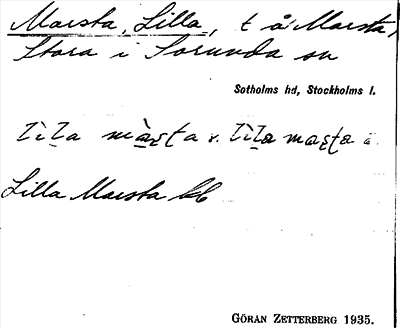 Marsta, Lilla, t å Marsta,
Stora i Sorunda sn
Sotholms hd, Stockholms l.
Lilla Marsta kb
GÖRAN ZETTERBERG 1935.